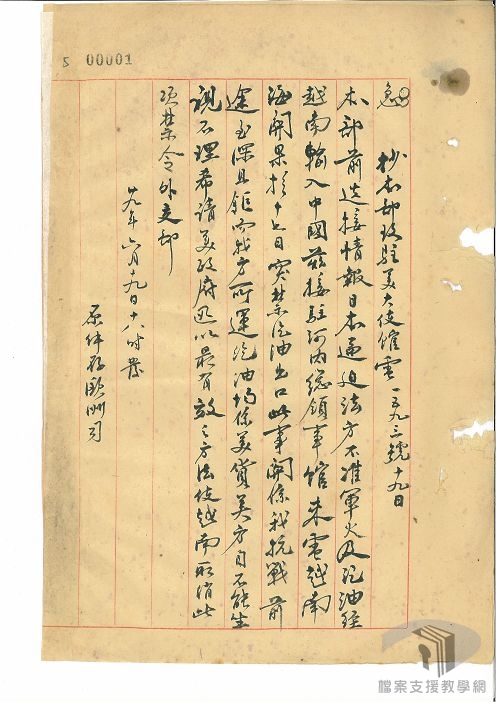 5 00001
急
抄本部致駐美大使館電 一五九三號 十九日
本部前迭接情報日本逼迫法方不准軍火及汽油經
越南輸入中國茲接駐河內總領事館來電越南
海關果於十七日實禁汽油出口此事關係我抗戰前
途至深且鉅而我方所運汽油均係美貨美方自不能坐
視不理希請美政府迅以最有效之方法使越南取消此
項禁令外交部
廿九年六月十九日十八時發
原件存歐洲司
檔案支援教學網